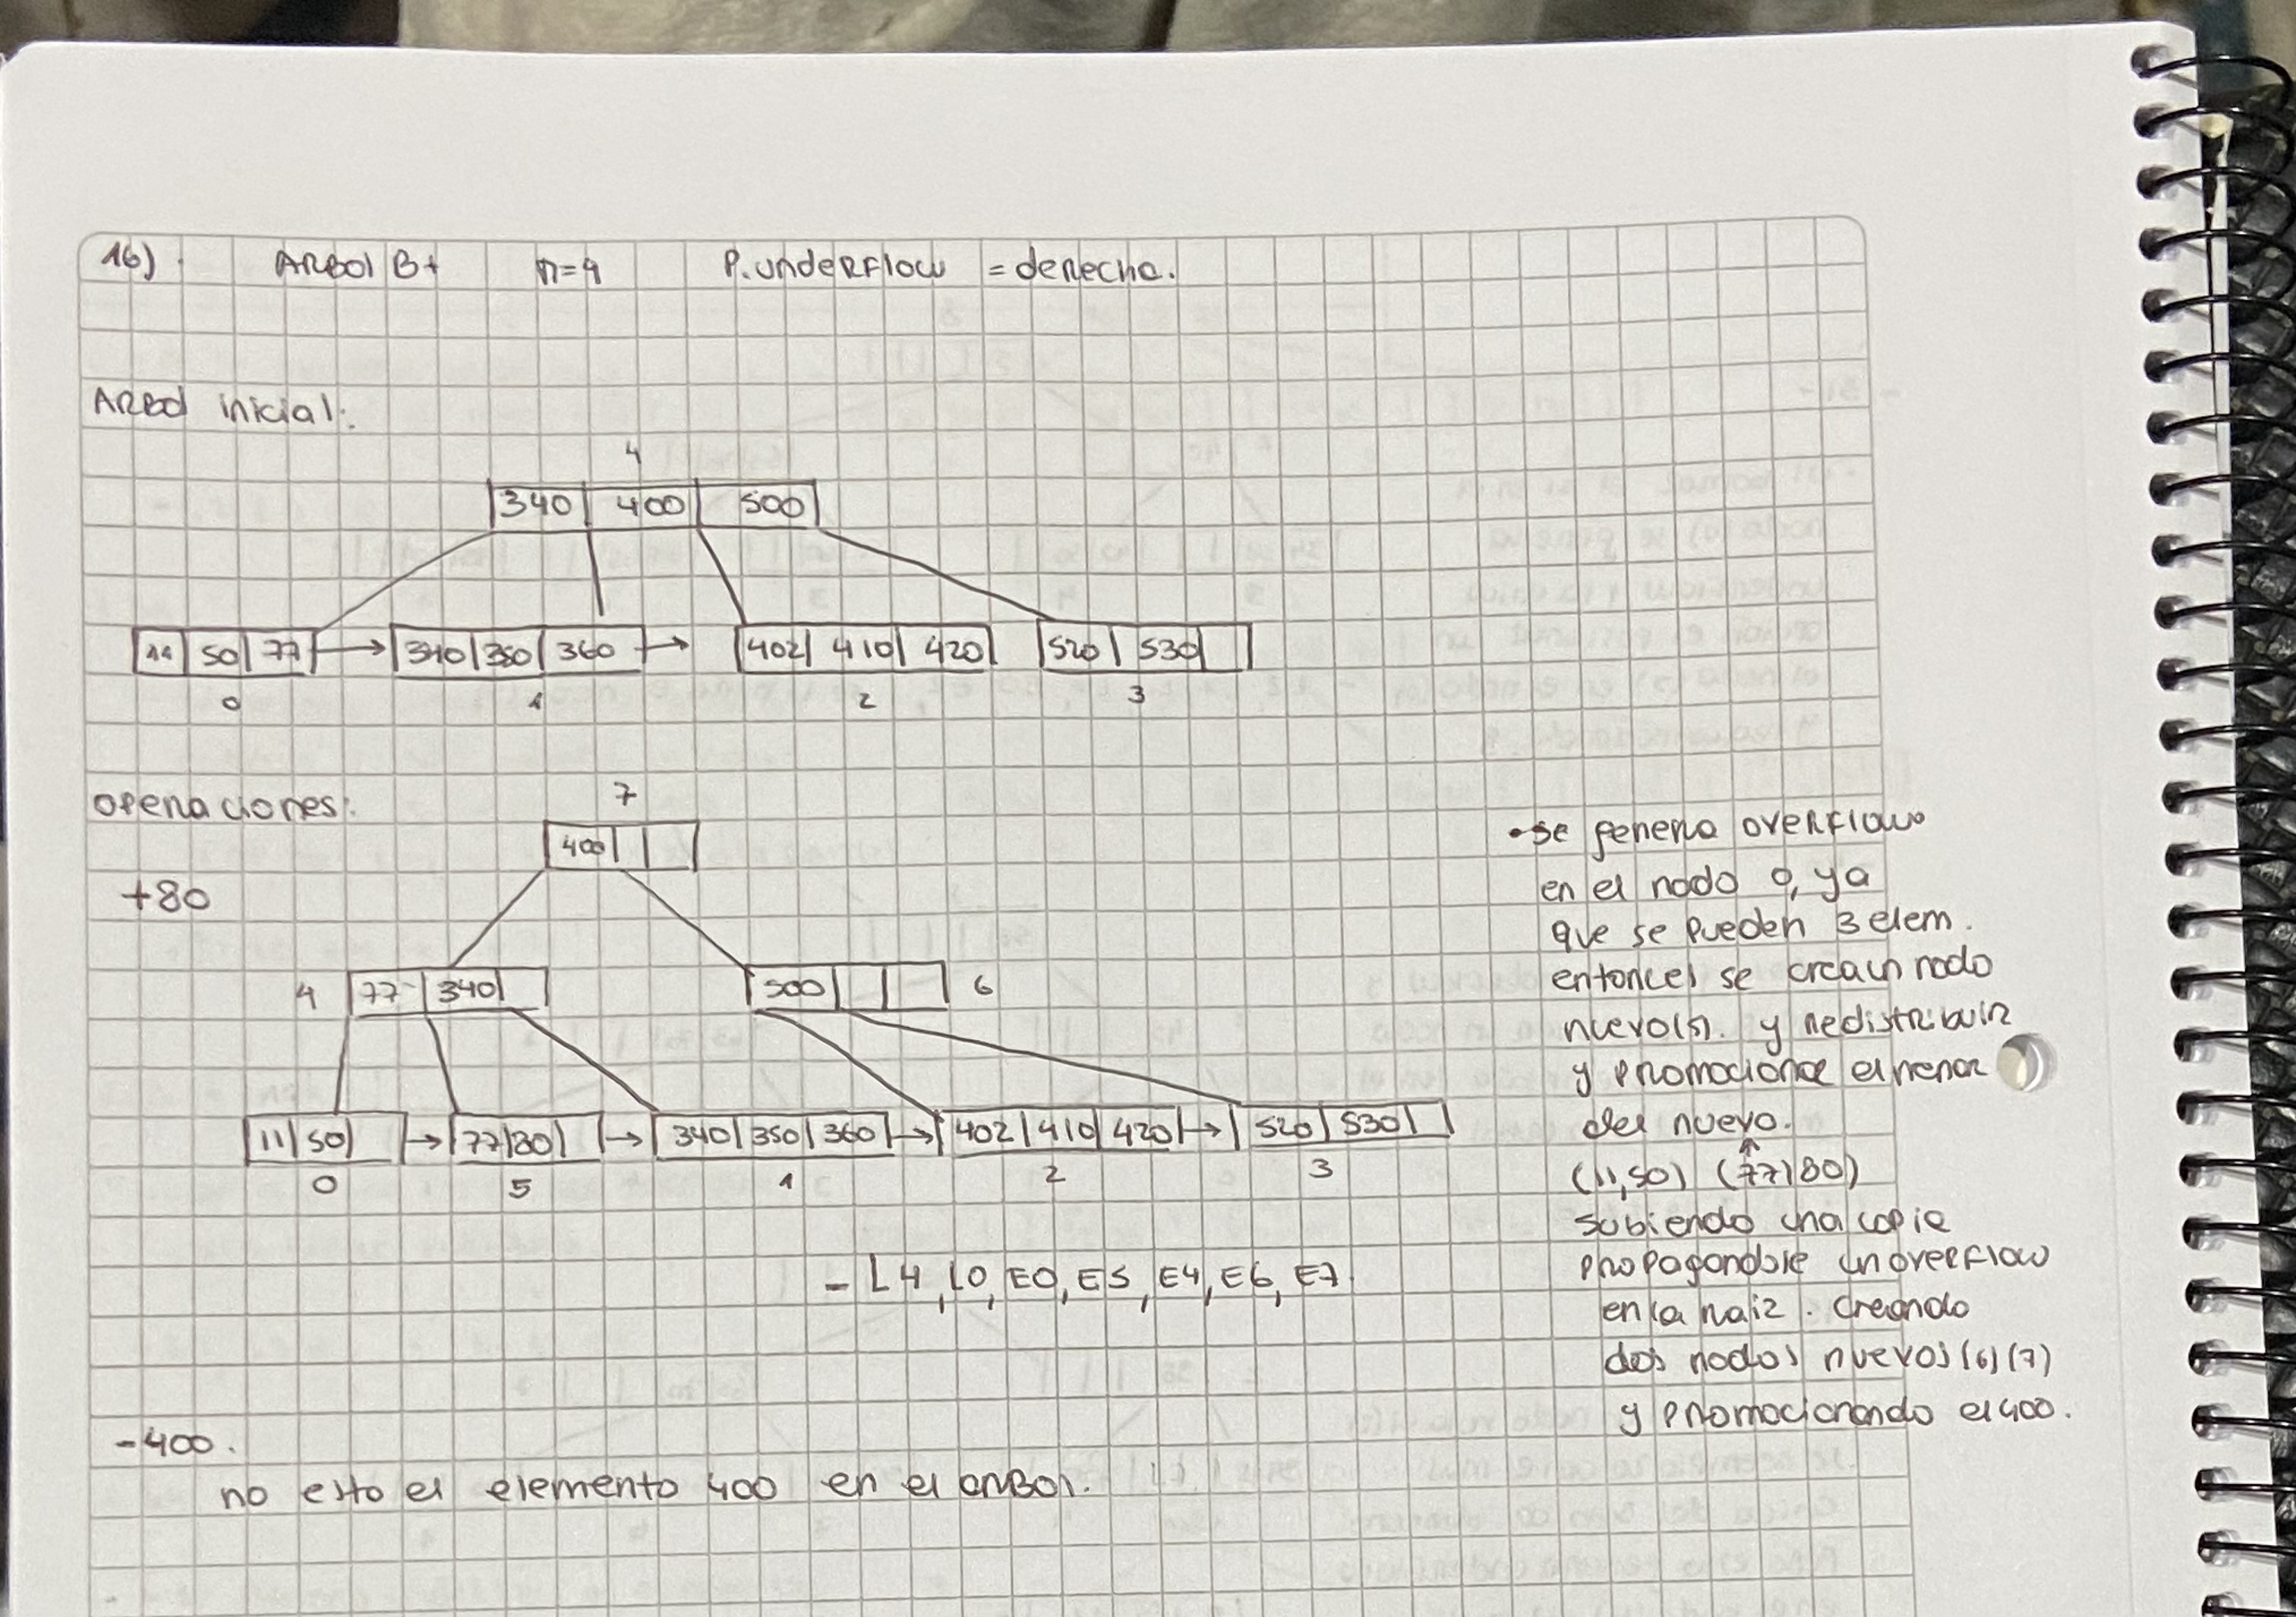 16) ARBOl B+ n=4 P. UNDERFLOW = derecha.
ARBOl inicial:
4
340 400 500
11 50 77 340 350 360 402 410 420 520 530
0 1 2 3
operaciones:
7
400
+80
4 77 340 500 6
11 50 77 80 340 350 360 402 410 420 520 530
0 5 1 2 3
- L4, L0, E0, E5, E4, E6, E7
•se genera overflow
en el nodo 0, ya
que se pueden 3 elem.
entonces se crea un nodo
nuevo(5). y redistribuir
y promociona el menor
del nuevo.
(11,50) (77,80)
subiendo una copia
propagandose un overflow
en la raiz. creando
dos nodos nuevos (6) (7)
y promocionando el 400.
-400.
no esta el elemento 400 en el arbol.